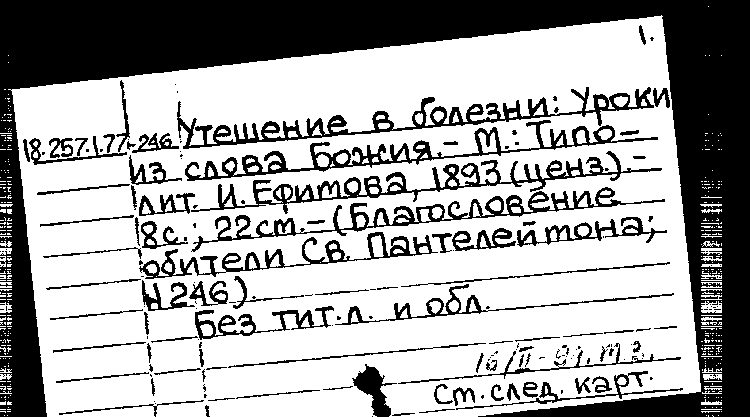 1.
18.257.1.77-246 Утешение в болезни: Уроки
из слова Божия.- М.: Типо-
лит. И. Ефимова, 1893 (ценз.).-
8с.; 22 см.- (Благословение
обители Св. Пантелеймона;
№246).
Без тит.л. и обл.
16/II-91. т 2.
См. след. карт.